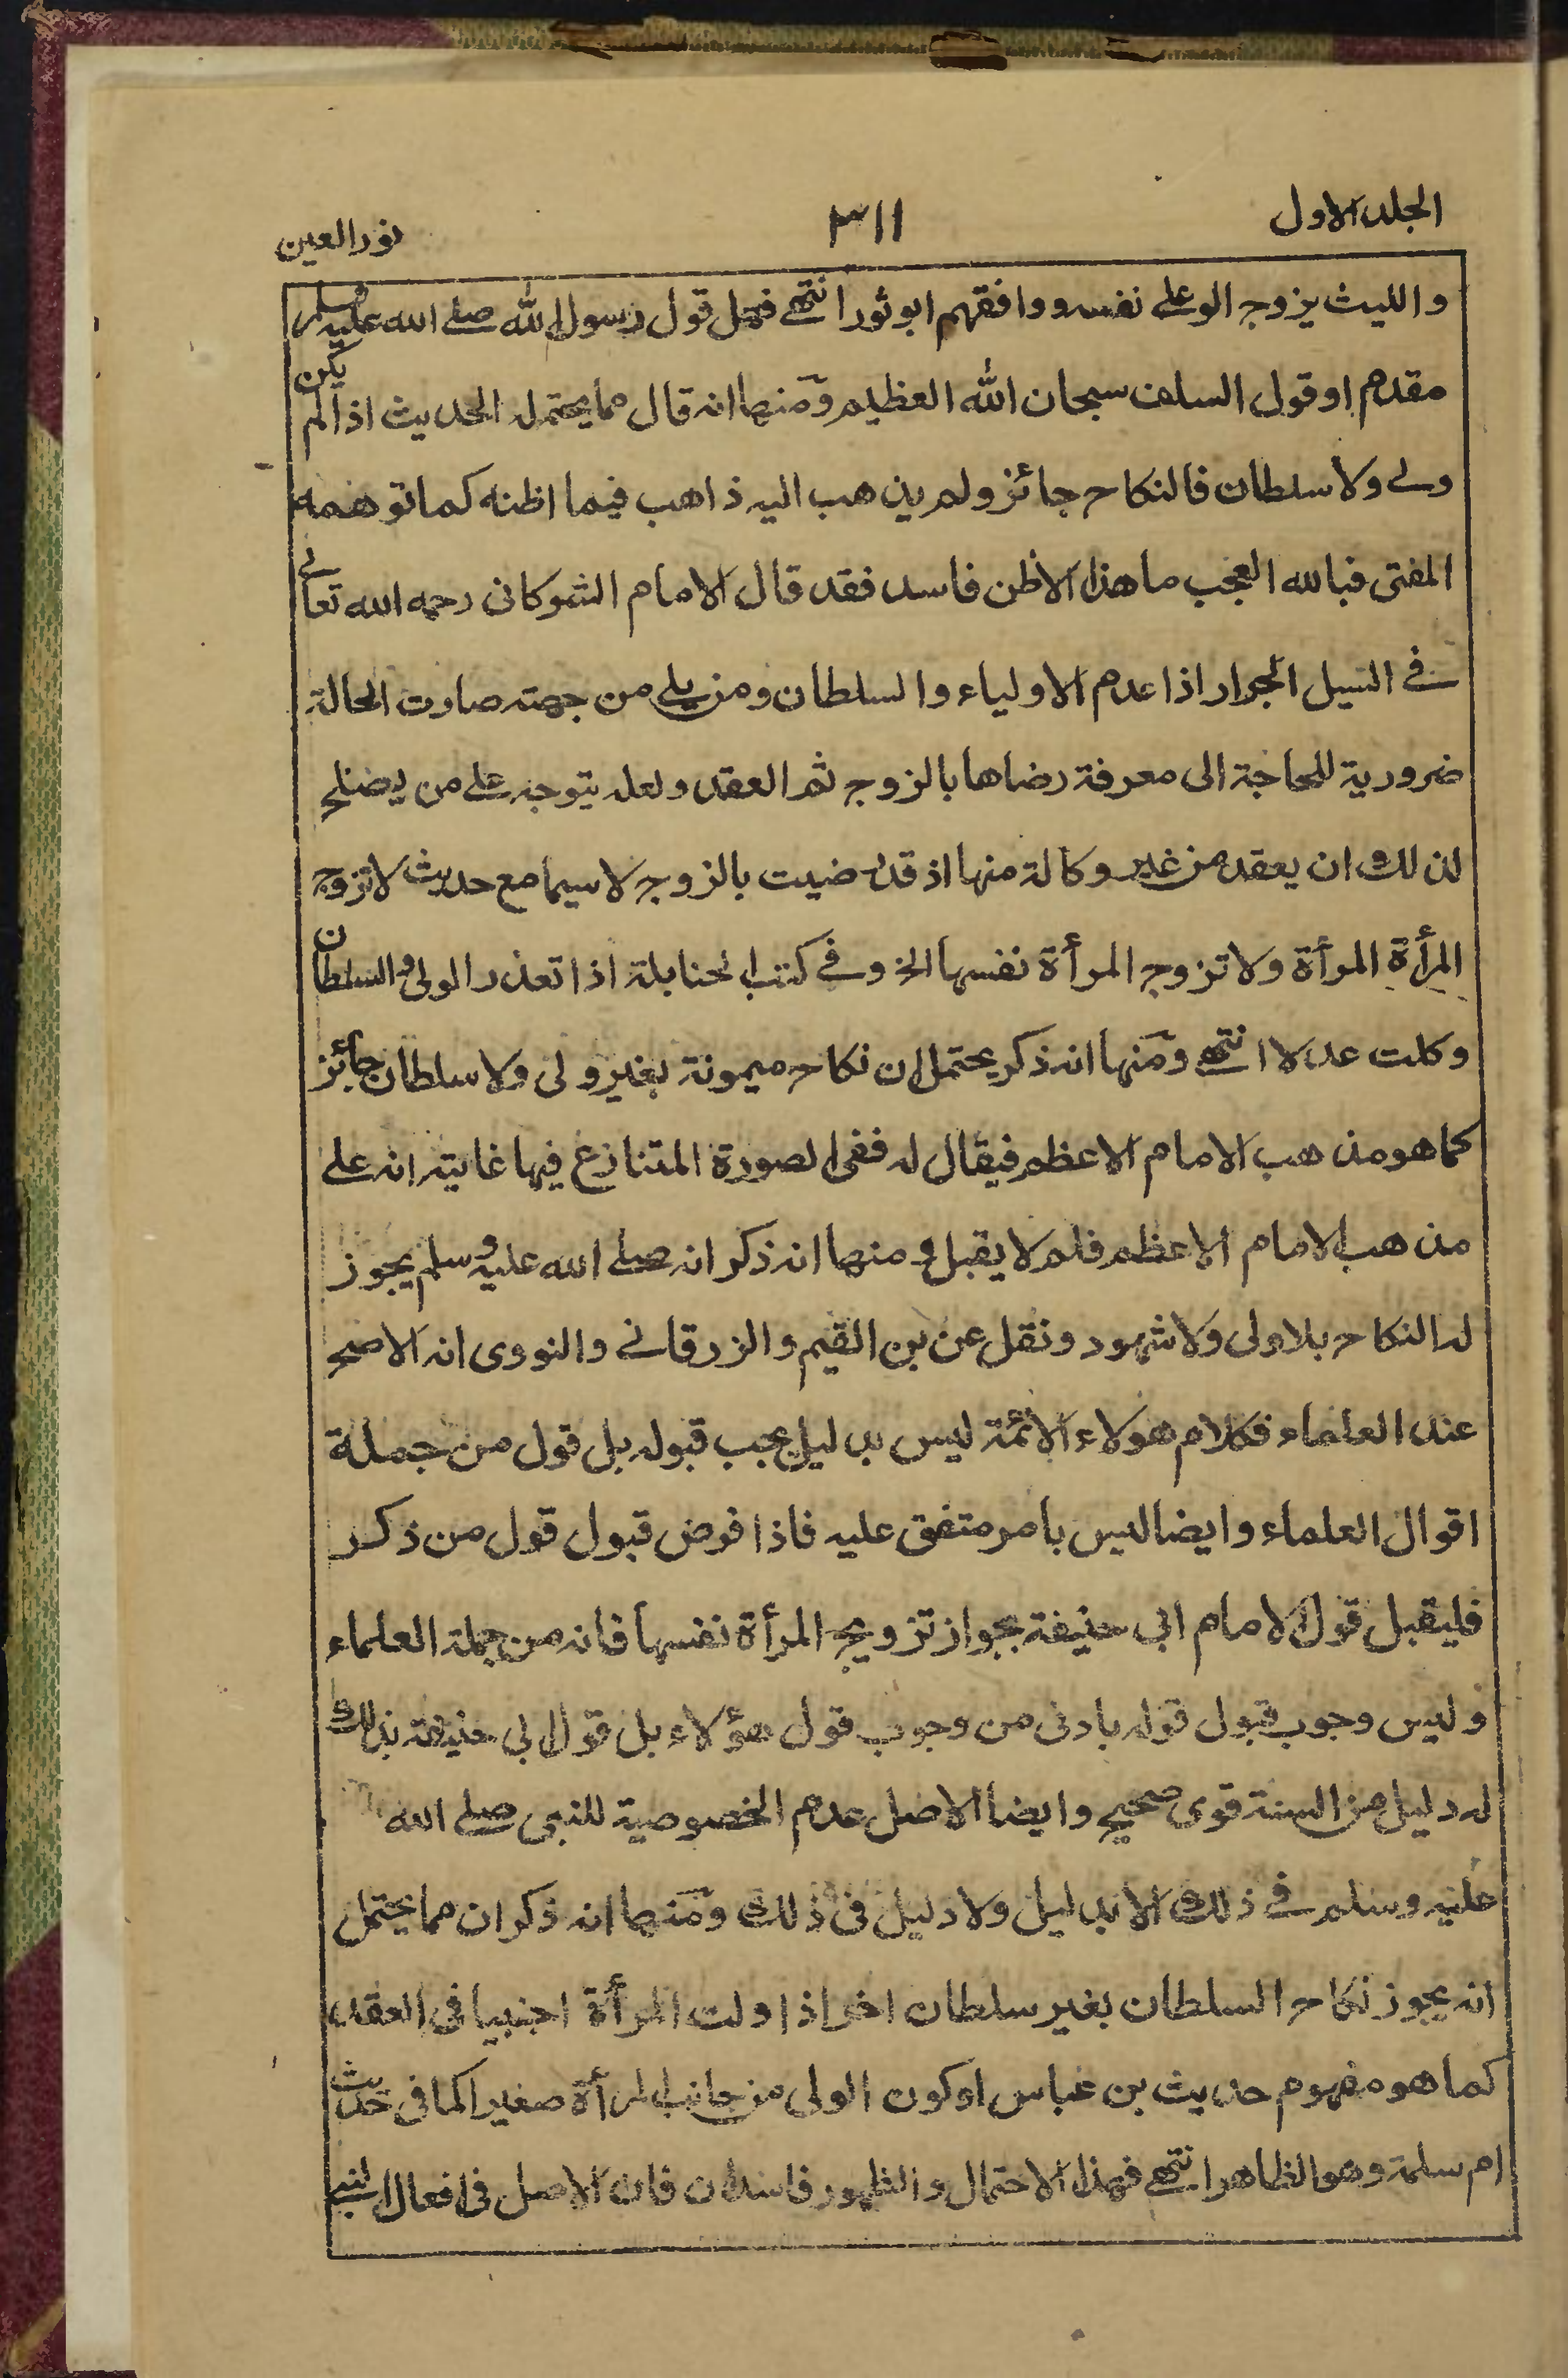 الجلد الاول
٣١١
نور العين
والليث يزوج الولي على نفسه ووافقهم ابو ثور انتهى فهل قول رسول الله صلى الله عليه وسلم
مقدم او قول السلف سبحان الله العظيم ومنها انه قال مما يحتمله الحديث اذا لم يكن
ولى ولا سلطان فالنكاح جائز ولم يذهب اليه ذاهب فيما اظنه كما توهمه
المفتى فبالله العجب ما هذا الا ظن فاسد فقد قال الامام الشوكانى رحمه الله تعالى
فى السيل الجرار اذا عدم الاولياء والسلطان ومن يلى من جهته صارت الحالة
ضرورية للحاجة الى معرفة رضاها بالزوج ثم العقد ولعله يتوجه على من يصلح
لذلك ان يعقد من غير وكالة منها اذ قد رضيت بالزوج لا سيما مع حديث لا تزوج
المرأة المرأة ولا تزوج المرأة نفسها الخ وفى كتب الحنابلة اذا تعذر الولى والسلطان
وكلت عدلا انتهى ومنها انه ذكر يحتمل ان نكاح ميمونة بغير ولى ولا سلطان جائز
كما هو مذهب الامام الاعظم فيقال له ففى الصورة المتنازع فيها غايته انه على
مذهب الامام الاعظم فلم لا يقبل ومنها انه ذكر انه صلى الله عليه وسلم يجوز
له النكاح بلا ولى ولا شهود ونقل عن بن القيم والزرقانى والنووى انه الاصح
عند العلماء فكلام هولاء الائمة ليس بدليل يجب قبوله بل قول من جملة
اقوال العلماء وايضا ليس بامر متفق عليه فاذا فرض قبول قول من ذكر
فليقبل قول الامام ابى حنيفة بجواز تزويج المرأة نفسها فانه من جملة العلماء
وليس وجوب قبول قوله بادنى من وجوب قول هؤلاء بل قول ابى حنيفة بذلك
له دليل من السنة قوى صحيح وايضا الاصل عدم الخصوصية للنبى صلى الله
عليه وسلم فى ذلك الا بدليل ولا دليل فى ذلك ومنها انه ذكر ان مما يحتمل
انه يجوز نكاح السلطان بغير سلطان اخر اذا ولت المرأة اجنبيا فى العقد
كما هو مفهوم حديث بن عباس او كون الولى من جانب المرأة صغيرا كما فى حديث
ام سلمة وهو الظاهر انتهى فهذا الاحتمال والظهور فاسدان فان الاصل فى افعال النبى